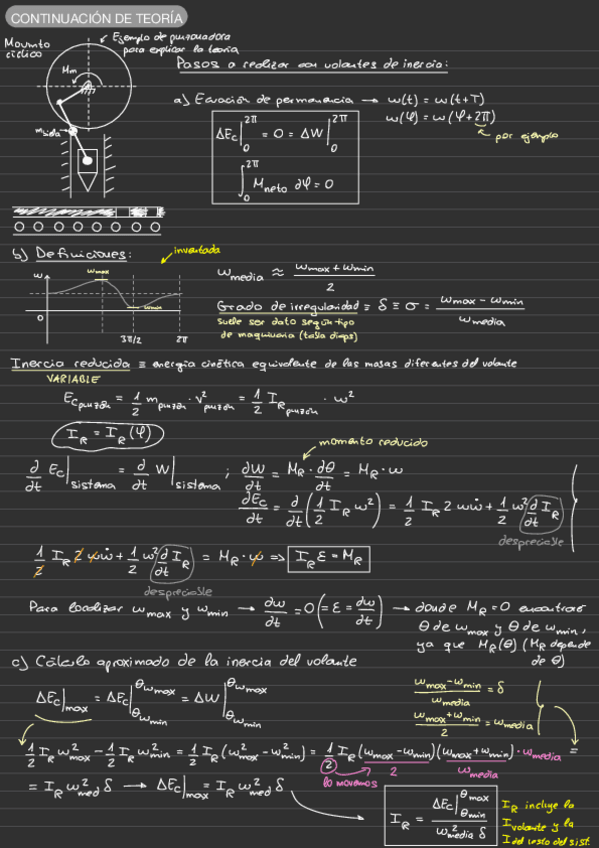 CONTINUACIÓN DE TEORÍA
Movimto cíclico
Ejemplo de punzonadora
para explicar la teoría
Mm
m biela
Pasos a realizar con volantes de inercia:
a) Ecuación de permanencia → ω(t) = ω(t+T)
ω(φ) = ω(φ+2π)
por ejemplo
ΔEc|₀^2π = 0 = ΔW|₀^2π
∫₀^2π Mneto dφ = 0
b) Definiciones:
inventada
ω
ωmax
ωmin
0
3π/2
2π
ωmedia ≈ (ωmax + ωmin)/2
Grado de irregularidad ≡ δ ≡ σ = (ωmax − ωmin)/ωmedia
suele ser dato según tipo
de maquinaria (tabla diaps)
Inercia reducida ≡ energía cinética equivalente de las masas diferentes del volante
VARIABLE
Ec punzón = 1/2 m punzón · v² punzón = 1/2 I R punzón · ω²
I_R = I_R(φ)
momento reducido
∂/∂t Ec|sistema = ∂/∂t W|sistema ; ∂W/∂t = M_R · ∂θ/∂t = M_R · ω
∂Ec/∂t = ∂/∂t (1/2 I_R ω²) = 1/2 I_R 2 ω ω̇ + 1/2 ω² ∂/∂t I_R
despreciable
1/2 I_R 2 ω ω̇ + 1/2 ω² ∂/∂t I_R = M_R · ω ⇒ I_R ε = M_R
despreciable
Para localizar ωmax y ωmin → ∂ω/∂t = 0 (= ε = ∂ω/∂t) → donde M_R = 0 encontraré
θ de ωmax y θ de ωmin,
ya que M_R(θ) (M_R depende
de θ)
c) Cálculo aproximado de la inercia del volante
ΔEc|max = ΔEc|θωmin^θωmax = ΔW|θωmin^θωmax
(ωmax − ωmin)/ωmedia = δ
(ωmax + ωmin)/2 = ωmedia
1/2 I_R ω²max − 1/2 I_R ω²min = 1/2 I_R (ω²max − ω²min) = 1/2 I_R (ωmax − ωmin)(ωmax + ωmin) · ωmedia =
lo movemos
2
ωmedia
= I_R ω²med δ → ΔEc|max = I_R ω²med δ
I_R = ΔEc|θmin^θmax / ω²media δ
I_R incluye la
I volante y la
I del resto del sist.